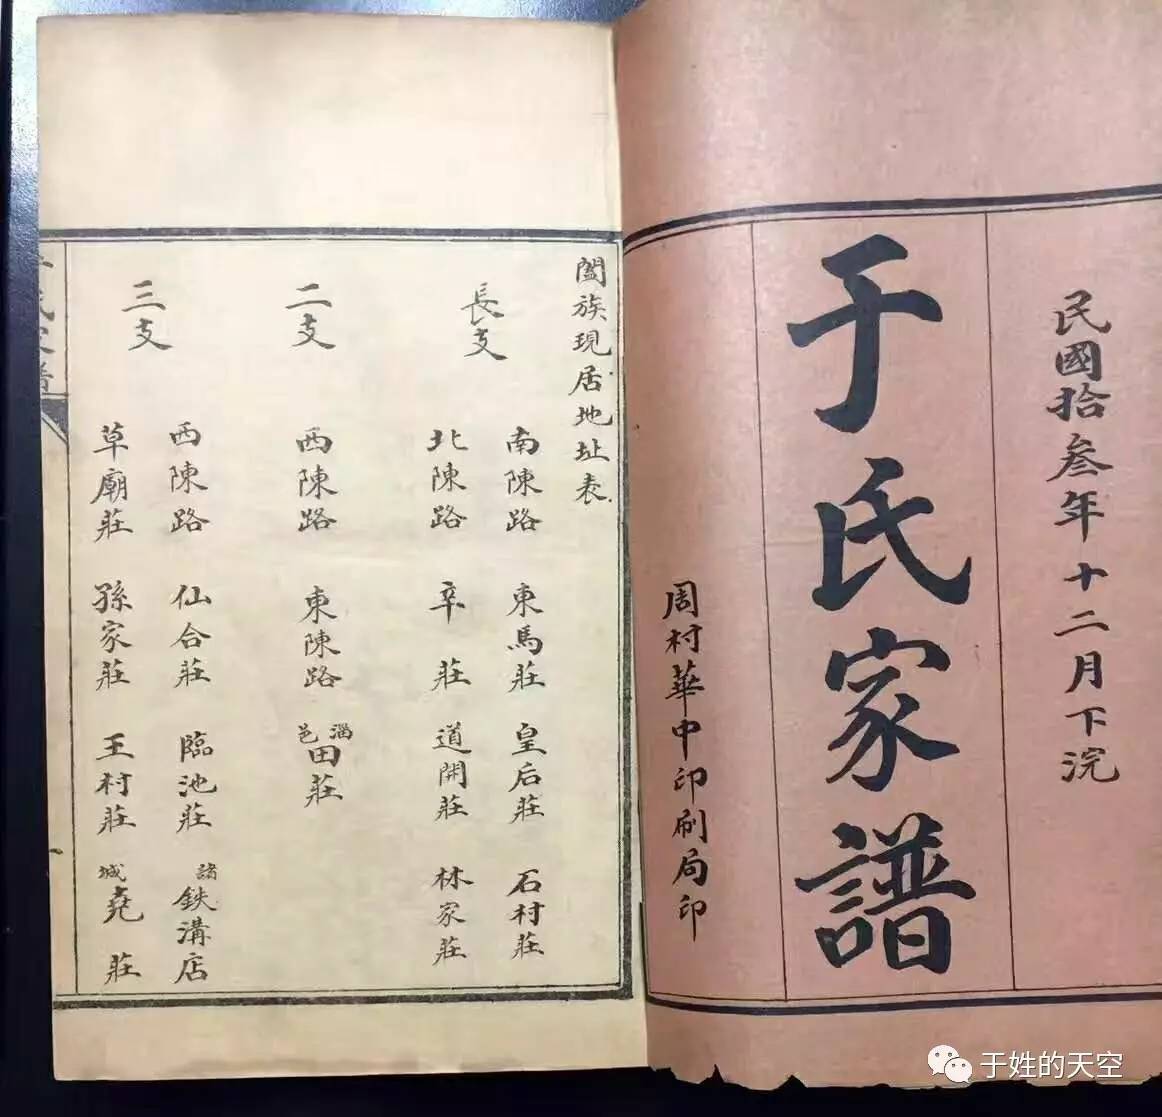 民國拾叄年十二月下浣
于氏家譜
周村華中印刷局印
闔族現居地址表
長支
南陳路 東馬莊 皇后莊 石村莊
北陳路 辛莊 道開莊 林家莊
二支
西陳路 東陳路 淄邑田莊
三支
西陳路 仙合莊 臨池莊 諸鉄溝店
草廟莊 孫家莊 王村莊 城堯莊
于姓的天空